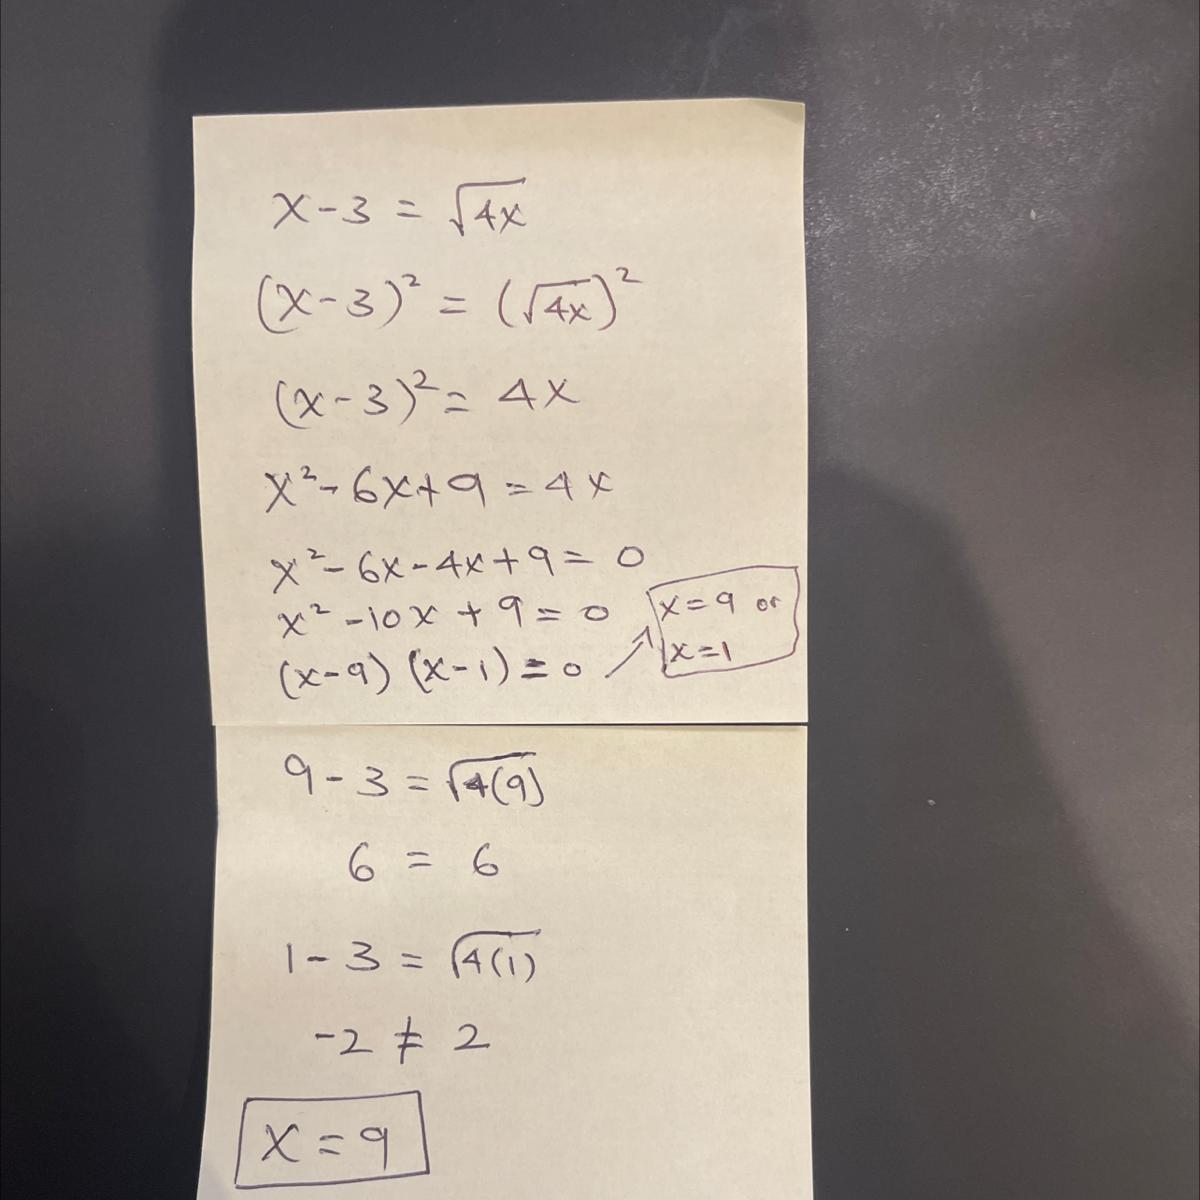 x - 3 = √4x
(x - 3)² = (√4x)²
(x - 3)² = 4x
x² - 6x + 9 = 4x
x² - 6x - 4x + 9 = 0
x² - 10x + 9 = 0
(x - 9) (x - 1) = 0 ↗
x = 9 or
x = 1
9 - 3 = √4(9)
6 = 6
1 - 3 = √4(1)
-2 ≠ 2
x = 9